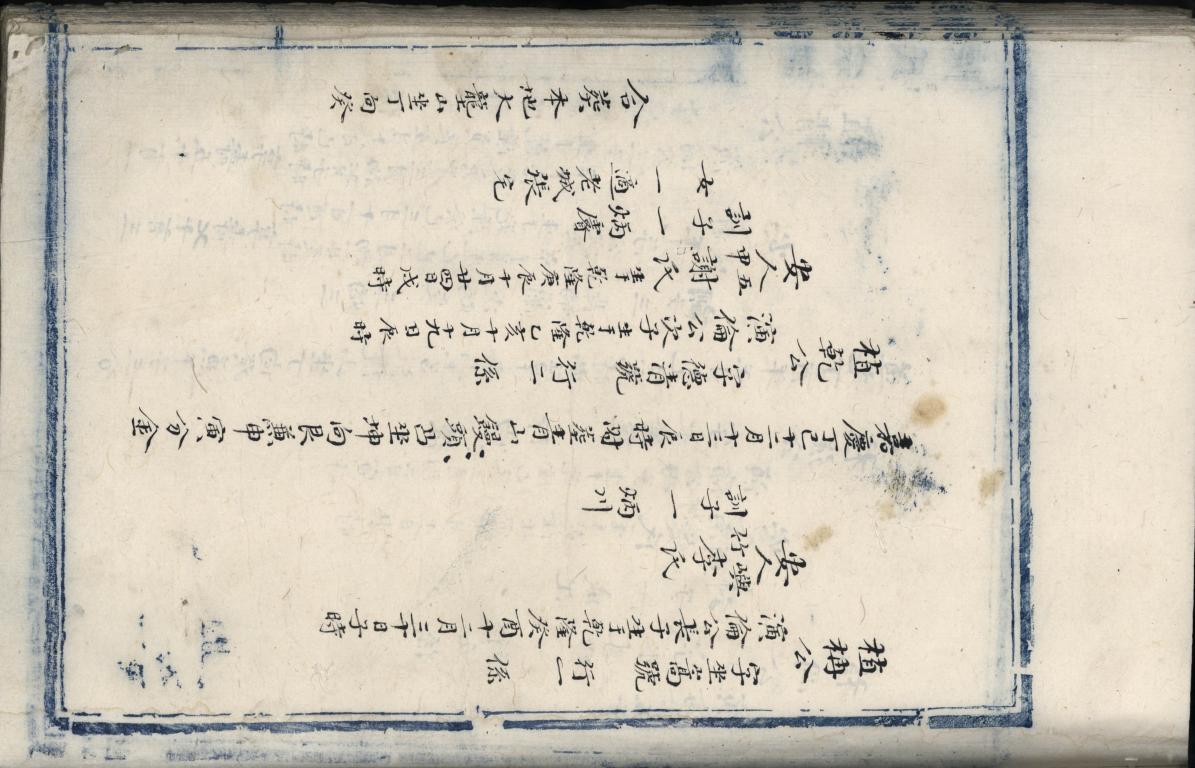 植栴公字坐高號行一係
演倫公長子生于乾隆癸酉十二月三十日子時
安人竹嶼李氏
訓子一炳川
嘉慶丁巳十二月十三日辰時開葬青山饅頭凸坐坤向艮兼申寅分金
植乾公字德清號行二係
演倫公次子生于乾隆乙亥十月十九日辰時
安人五甲謝氏生于乾隆庚辰十月廿四日戌時
訓子一炳膺
女一適老城張宅
合葬本地大壟山坐丁向癸